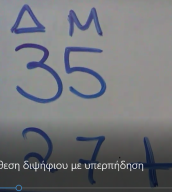 Δ Μ
35
27 +
θεση διψήφιου με υπερπήδηση